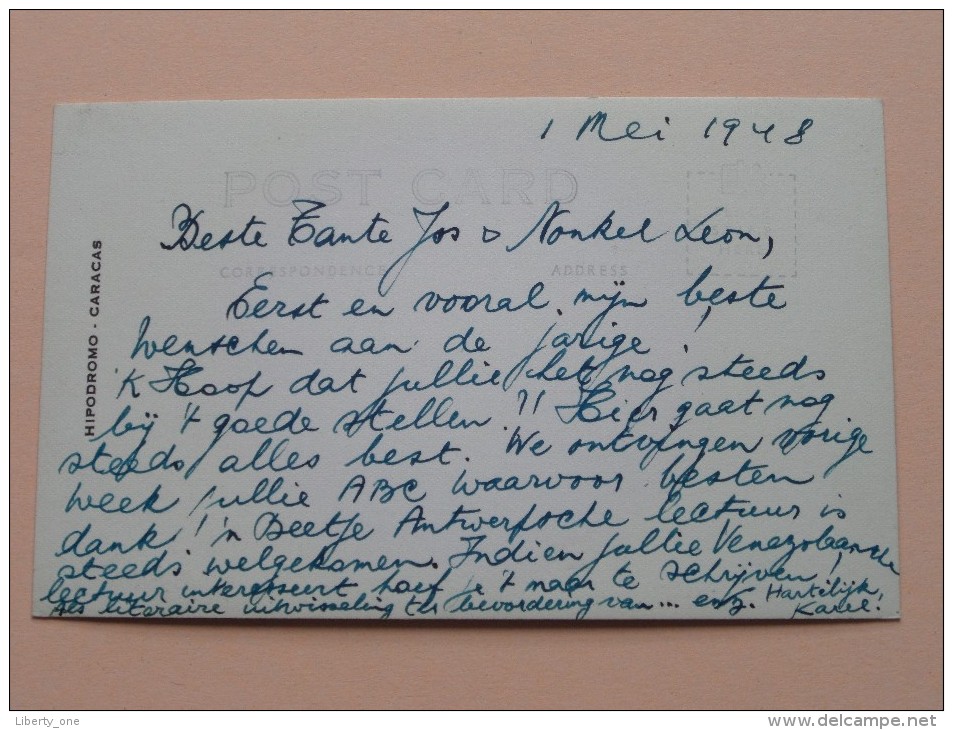 1 Mei 1948
POST CARD
Beste Tante Jos & Nonkel Leon,
CORRESPONDENCE
ADDRESS
HERE
HIPODROMO - CARACAS
Eerst en vooral mijn beste
wenschen aan de jarige!
'K Hoop dat jullie het nog steeds
bij 't goede stellen!! Hier gaat nog
steeds alles best. We ontvingen vorige
week jullie ABC waarvoor besten
dank! 'n Beetje Antwerpsche lectuur is
steeds welgekomen. Indien jullie Venezolaansche
lectuur interesseert hoef je 't maar te schrijven!
Als literaire uitwisseling ter bevordering van... enz. Hartelijk,
Karel!
Liberty_one
www.delcampe.net